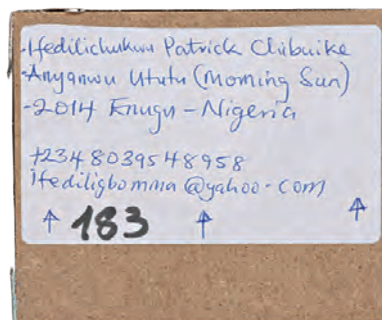 -Ifedilichukwu Patrick Chibuike
-Anyanwu Ututu (Morning Sun)
-2014 Enugu - Nigeria
+2348039548958
Ifediligbomma@yahoo.com
183